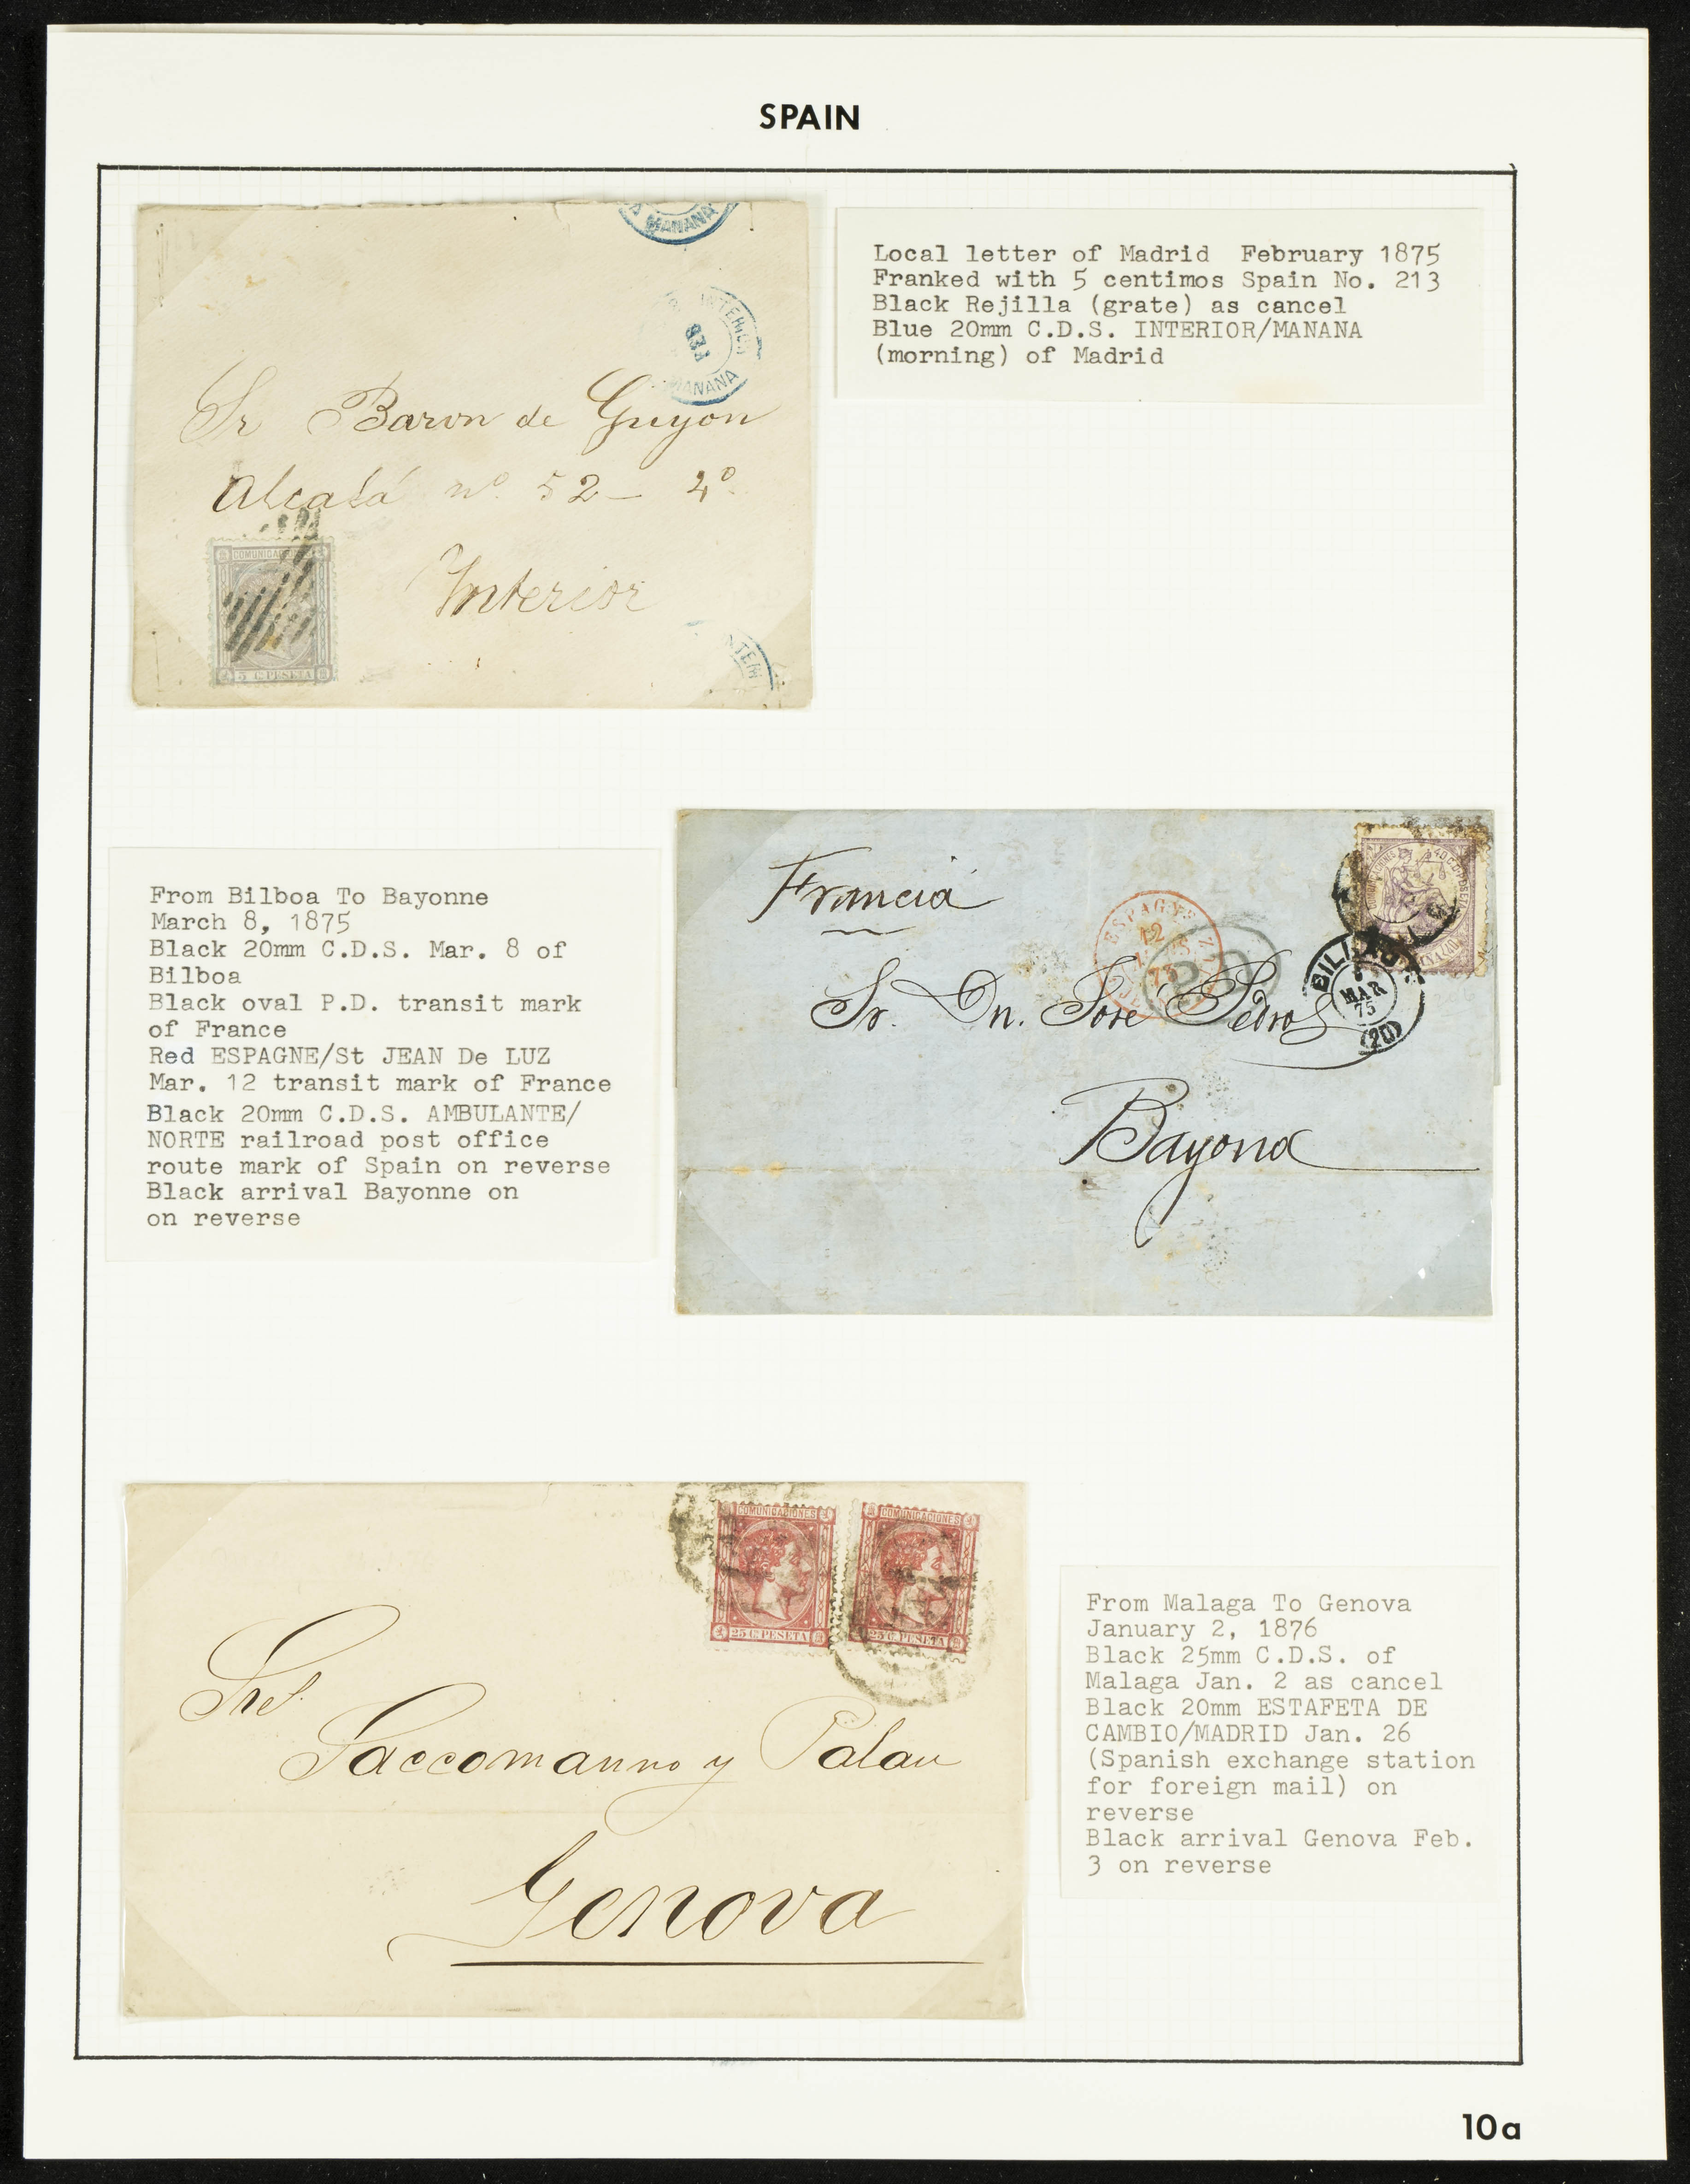 SPAIN
A MANANA
INTERIOR
MANANA
Sr Baron de Guyon
Alcalá nº 52 - 4º
Interior
COMUNICACIONES
5 Cs PESETA
INTERI
Local letter of Madrid February 1875
Franked with 5 centimos Spain No. 213
Black Rejilla (grate) as cancel
Blue 20mm C.D.S. INTERIOR/MANANA
(morning) of Madrid
From Bilboa To Bayonne
March 8, 1875
Black 20mm C.D.S. Mar. 8 of
Bilboa
Black oval P.D. transit mark
of France
Red ESPAGNE/St JEAN De LUZ
Mar. 12 transit mark of France
Black 20mm C.D.S. AMBULANTE/
NORTE railroad post office
route mark of Spain on reverse
Black arrival Bayonne on
on reverse
Francia
ESPAGNE
12
75
PD
BILBAO
8
MAR
75
(20)
Sr. Dn. José Pedros
Bayona
COMUNICACIONES
25 Cs PESETA
COMUNICACIONES
25 Cs PESETA
Sres.
Saccomanno y Palau
Genova
From Malaga To Genova
January 2, 1876
Black 25mm C.D.S. of
Malaga Jan. 2 as cancel
Black 20mm ESTAFETA DE
CAMBIO/MADRID Jan. 26
(Spanish exchange station
for foreign mail) on
reverse
Black arrival Genova Feb.
3 on reverse
10a